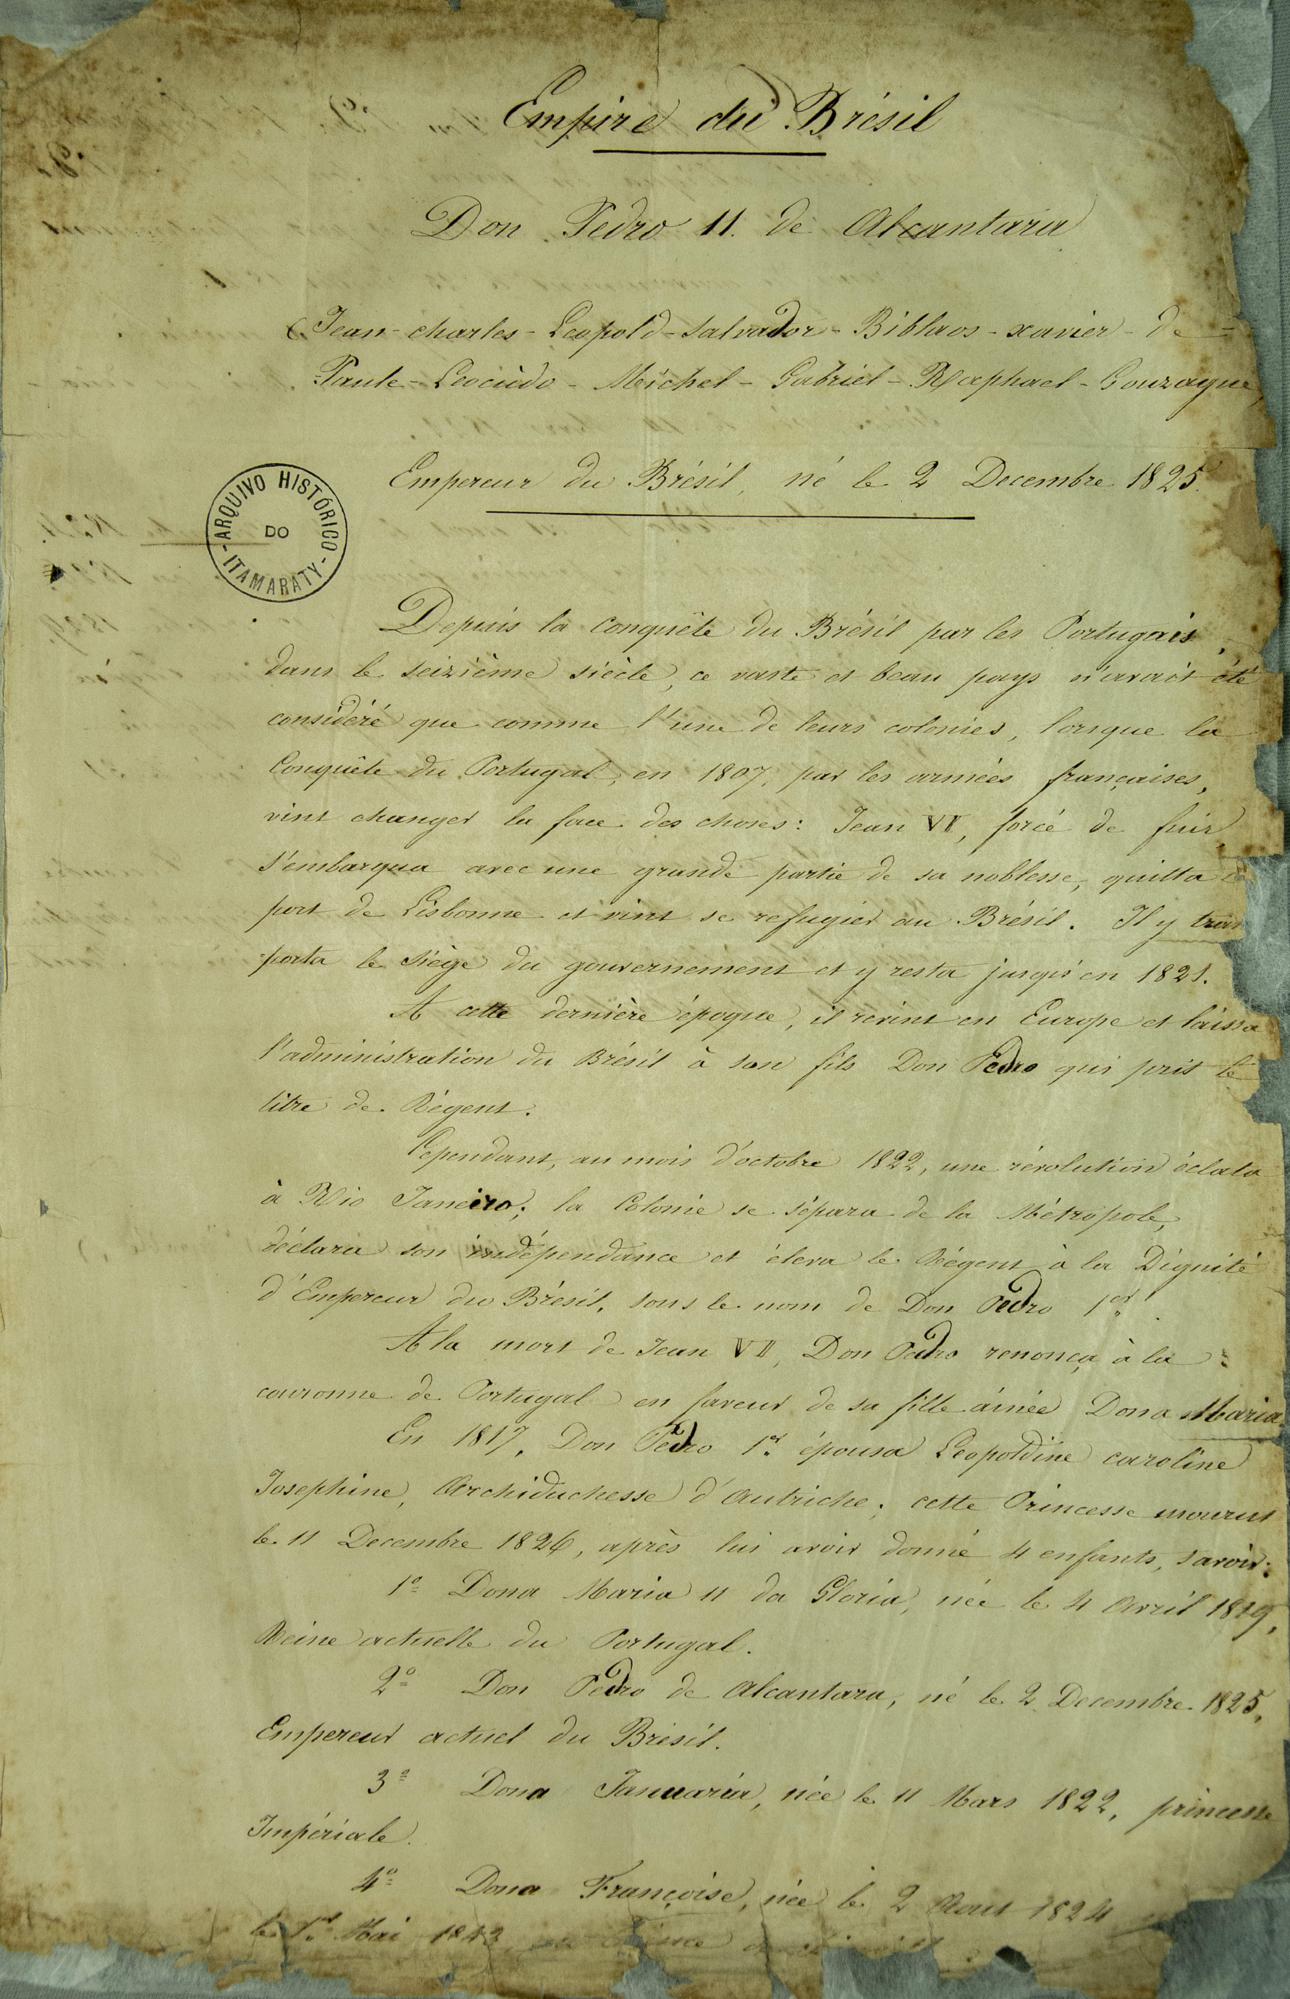 Empire du Brésil
Don Pedro II. de Alcantara
(Jean-charles-Leopold-Salvador-Bibliaos-xavier-de-
Paule-Leocüdo-Michel-Gabriel-Raphael-Gonzague,
Empereur du Brésil, né le 2 Decembre 1825.
ARQUIVO HISTÓRICO
DO
-ITAMARATY-
Depuis la conquête du Brésil par les Portugais,
dans le seizième siècle, ce vaste et beau pays n'avait été
considéré que comme l'une de leurs colonies, lorsque la
Conquête du Portugal, en 1807, par les armées françaises,
vint changer la face des choses: Jean VI, forcé de fuir
s'embarqua avec une grande partie de sa noblesse, quitta le
port de Lisbonne et vint se refugier au Brésil. Il y trans
porta le siège du gouvernement et y resta jusqu'en 1821.
A cette dernière époque, il revint en Europe et laissa
l'administration du Brésil à son fils Don Pedro qui prit le
titre de Régent.
Cependant, au mois d'octobre 1822, une révolution éclata
à Rio Janeiro; la Colonie se sépara de la Métropole,
déclara son indépendance et éleva le Régent à la Dignité
d'Empereur du Brésil, sous le nom de Don Pedro 1er.
A la mort de Jean VI, Don Pedro renonça à la
couronne de Portugal en faveur de sa fille ainée Dona Maria.
En 1817, Don Pedro 1er épousa Leopoldine caroline
Josephine, Archiduchesse d'Autriche; cette Princesse mourut
le 11 Decembre 1826, après lui avoir donné 4 enfants, savoir:
1º Dona Maria II da Gloria, née le 4 Avril 1819,
Reine actuelle du Portugal.
2º Don Pedro de Alcantara, né le 2 Decembre 1825,
Empereur actuel du Brésil.
3º Dona Januaria, née le 11 Mars 1822, princesse
Impériale.
4º Dona Françoise, née le 2 Aout 1824
le 1er Mai 1843